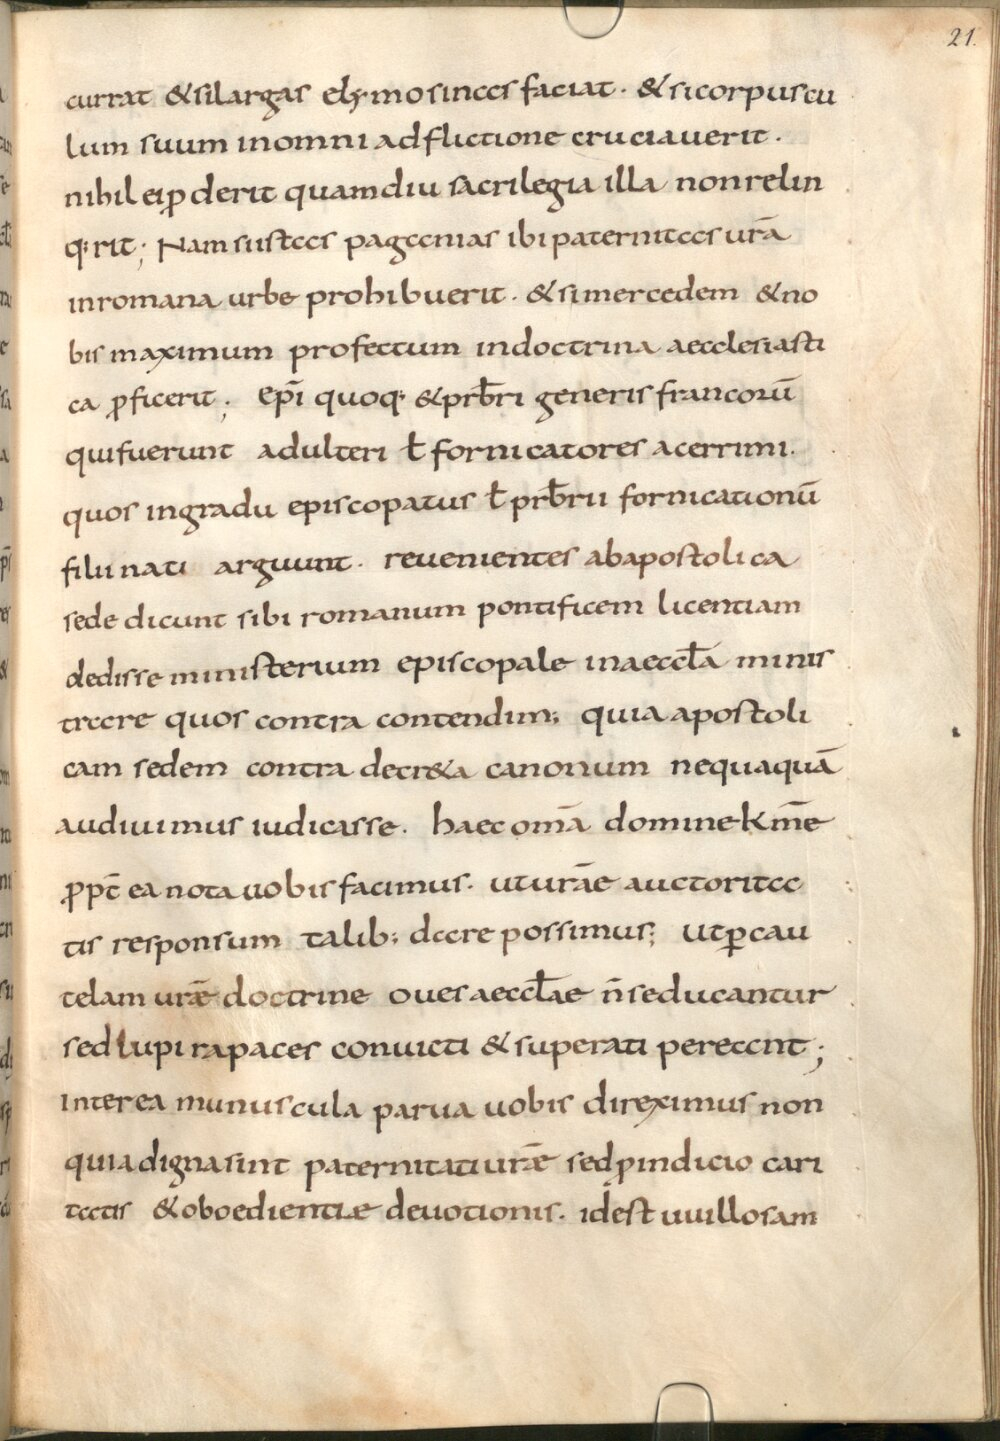 21.
currat & si largas elymosinas faciat · & si corpuscu
lum suum in omni adflictione cruciauerit ·
nihil ei ꝓderit quamdiu sacrilegia illa non relin
q:rit; Nam si istas paganias ibi paternitas ur̄a
in romana urbe prohibuerit · & si mercedem & no
bis maximum profectum in doctrina aecclesiasti
ca ꝓficerit; epī quoq: & prb̄ri generis francorū
qui fuerunt adulteri ł fornicatores acerrimi ·
quos in gradu episcopatus ł prb̄rii fornicationū
filii nati arguunt · reuenientes ab apostolica
sede dicunt sibi romanum pontificem licentiam
dedisse ministerium episcopale in aeccła minis
trare quos contra contendim; quia apostoli
cam sedem contra decr&a canonum nequaquā
audiuimus iudicasse · haec om̄a domine km̄e
ꝓpt̄ ea nota uobis facimus · ut ur̄ae auctorita
tis responsum talib; dare possimus; ut ꝑ cau
telam ur̄ae doctrine oues aeccłae n̄ seducantur
sed lupi rapaces conuicti & superati pereant;
Interea munuscula parua uobis direximus non
quia digna sint paternitati ur̄ae sed ꝓ indicio cari
tatis & oboedientiae deuotionis · id est uuillosam